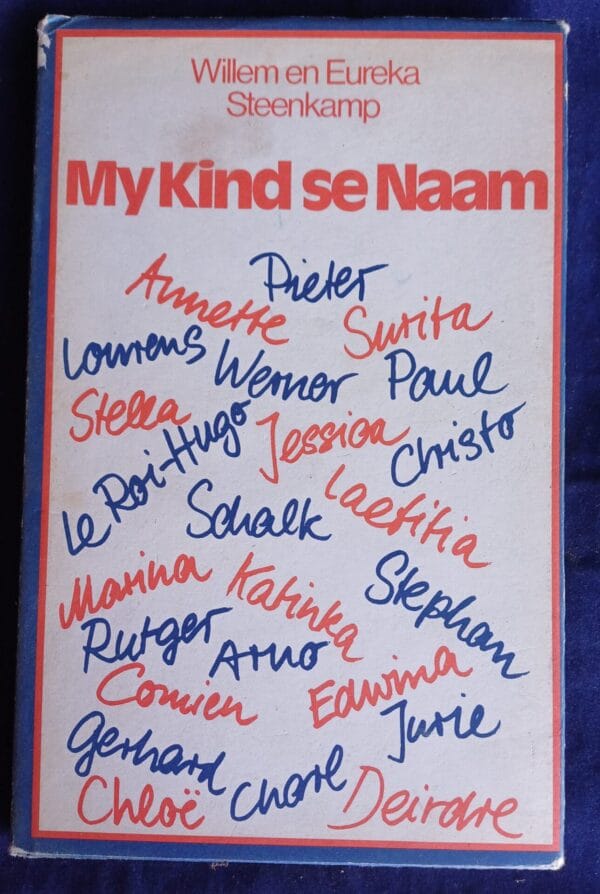 Willem en Eureka
Steenkamp
My Kind se Naam
Pieter
Annette
Surita
Lourens
Werner
Paul
Stella
Jessica
Christo
Le Roi-Hugo
Laetitia
Schalk
Marina
Katinka
Stephan
Rutger
Arno
Comien
Edwina
Jurie
Gerhard
Charl
Chloë
Deirdre